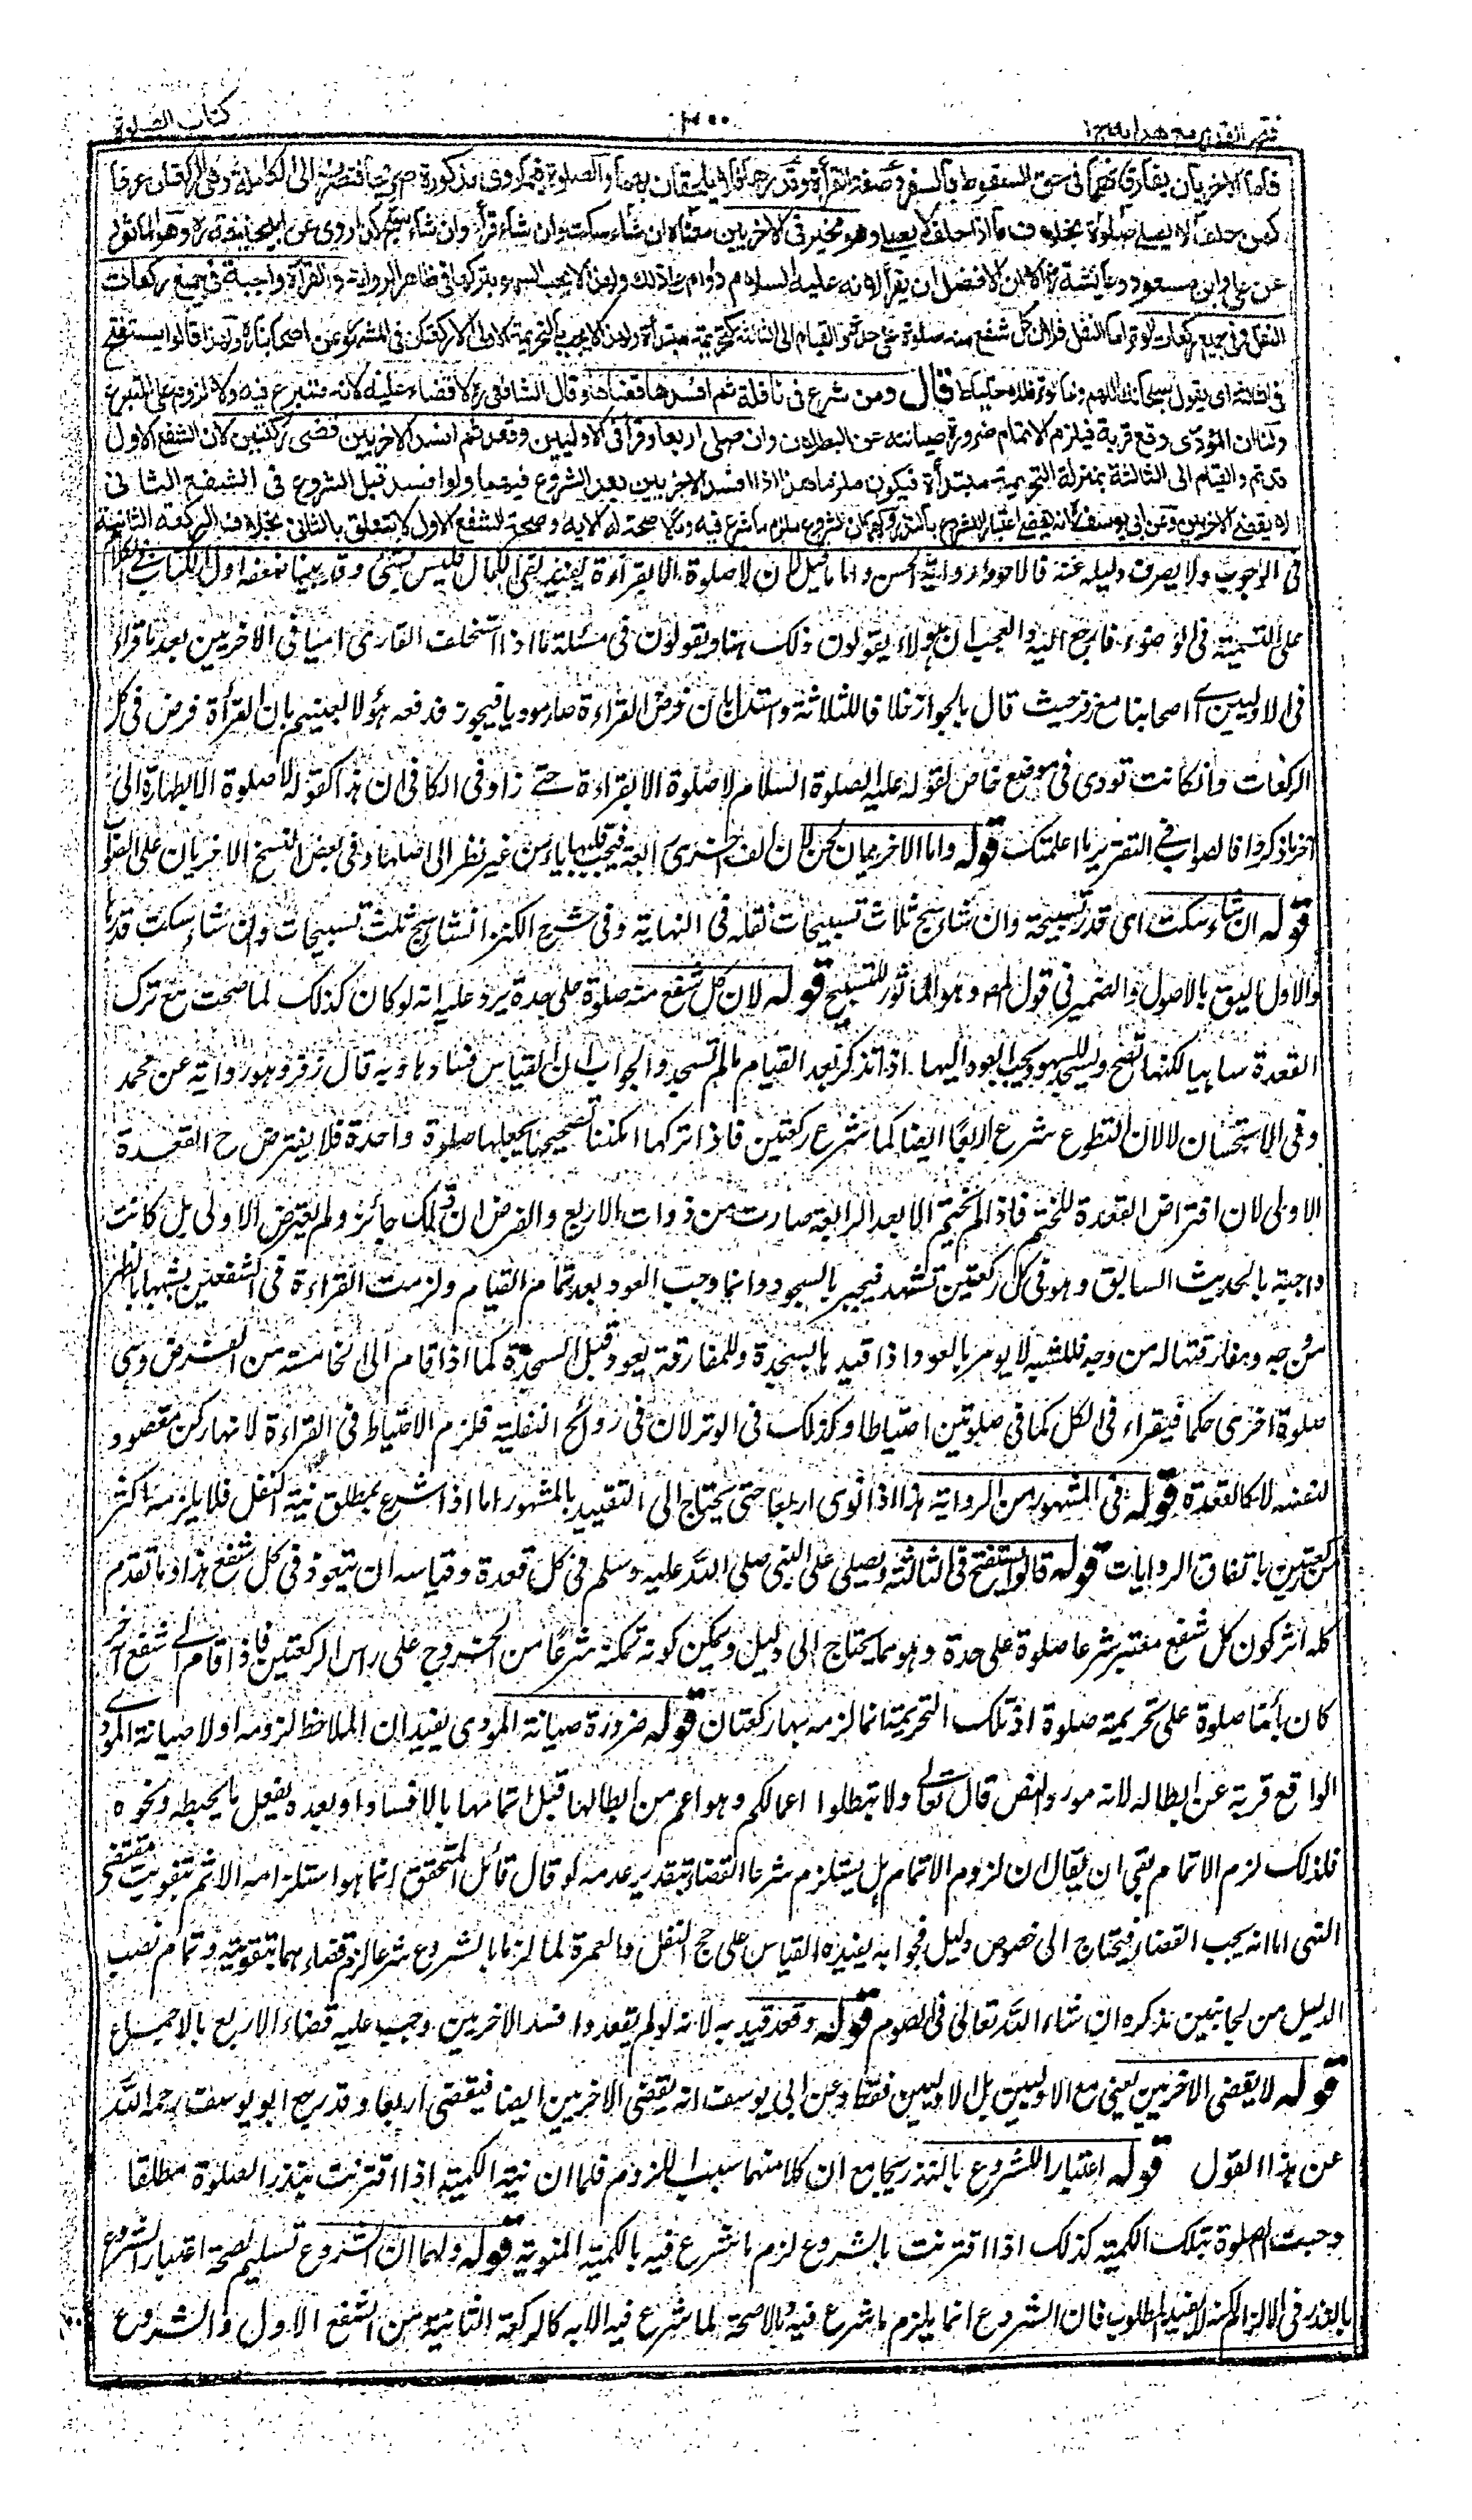 فتح القدير مع هدايه ج١
٢٠٠
كتاب الصلوة
فاما الاخريان يفارقانهما فى حق السقوط بالسفر وصفة القراءة وقدرها فلا يلحقان بهما والصلوة فيما روى مذكورة صريحا فتنصرف الى الكاملة وهى الركعتان عرفا
كمن حلف لا يصلى صلوة بخلاف ما اذا حلف لا يصلى وهو مخير فى الاخريين معناه ان شاء سكت وان شاء قرأ وان شاء سبح كذا روى عن ابى حنيفة وهو الماثور
عن على وابن مسعود وعائشة الا ان الافضل ان يقرأ لانه عليه السلام داوم على ذلك ولهذا لا يجب السهو بتركها فى ظاهر الرواية والقراءة واجبة فى جميع ركعات
النفل وفى جميع ركعات الوتر اما النفل فلان كل شفع منه صلوة على حدة والقيام الى الثالثة كتحريمة مبتدأة ولهذا لا يجب بالتحريمة الاولى الا ركعتان فى المشهور عن اصحابنا ولهذا قالوا يستفتح
فى الثالثة اى يقول سبحانك اللهم وبحمدك قال ومن شرع فى نافلة ثم افسدها قضاها وقال الشافعى لا قضاء عليه لانه متبرع فيه ولا لزوم على المتبرع
ولنا ان المؤدى وقع قربة فيلزم الاتمام ضرورة صيانته عن البطلان وان صلى اربعا وقرأ فى الاوليين وقعد ثم افسد الاخريين قضى ركعتين لان الشفع الاول
قد تم والقيام الى الثالثة بمنزلة التحريمة مبتدأة فيكون ملزما هذا اذا افسد الاخريين بعد الشروع فيهما ولو افسد قبل الشروع فى الشفع الثانى
لا يقضى الاخريين وعن ابى يوسف انه يقضى اعتبارا للشروع بالنذر ولهما ان الشروع يلزم ما شرع فيه وما لا صحة له الا به وصحة الشفع الاول لا تتعلق بالثانى بخلاف الركعة الثانية
فى الوجوب ولا يصرف دليله عنه فالاحوط رواية الحسن واما ما قيل لان لا صلوة الا بقراءة يفيد نفى الكمال فليس بشئ وقد بينا ضعفه اول الكتاب فى الكلام
على التسمية فى الوضوء فارجع اليه والعجب ان هؤلاء يقولون ذلك هنا ويقولون فى مسئلة ما اذا استخلف القارئ اميا فى الاخريين بعد ما قراء
فى الاوليين اصحابنا مع زفر حيث قال بالجواز خلافا للثلاثة واستدل بان فرض القراءة صار موديا فيجوز فدفعه هؤلاء بعينهم بان القراءة فرض فى كل
الركعات وانكانت تودى فى موضع خاص لقوله عليه الصلوة السلام لا صلوة الا بقراءة حتى زاد فى الكافى ان هذا كقوله لا صلوة الا بطهارة الى
آخر ما ذكروا فالصواب فى التقرير ما اعلمتك قوله واما الاخريان لحن لان الف اخرى رابعة فيجب قلبها ياء من غير نظر الى اصلها وفى بعض النسخ الاخريان على الصواب
قوله ان شاء سكت اى قدر تسبيحة وان شاء سبح ثلاث تسبيحات نقله فى النهاية وفى شرح الكنز ان شاء سبح ثلث تسبيحات وان شاء سكت قدرها
والاول اليق بالاصول والضمير فى قول المص وهو الماثور للتسبيح قوله لان كل شفع منه صلوة على حدة يرد عليه انه لو كان كذلك لما صحت مع ترك
القعدة ساهيا لكنها تصح ويسجد للسهو ويجب العود اليها اذا تذكر بعد القيام ما لم يسجد والجواب ان القياس فسادها وبه قال زفر وهو رواية عن محمد
وفى الاستحسان لا لان التطوع شرع اربعا ايضا كما شرع ركعتين فاذا تركها امكننا تصحيحها بجعلها صلوة واحدة فلا يفترض ح القعدة
الاولى لان افتراض القعدة للختم فاذا لم يختم الا بعد الرابعة صارت من ذوات الاربع والفرض ان ذلك جائز ولم يفترض الاولى بل كانت
واجبة بالحديث السابق وهو فى كل ركعتين تشهد فيجبر بالسجود وانما وجب العود بعد تمام القيام ولزمت القراءة فى الشفعين لشبهها بالظهر
من وجه ومفارقتها له من وجه فللشبه لا يومر بالعود اذا قيد بالسجدة وللمفارقة يعود قبل السجدة كما اذا قام الى الخامسة من الفرض وهى
صلوة اخرى حكما فيقراء فى الكل كما فى صلوتين احتياطا وكذلك فى الوتر لان فيه روائح النفلية فلزم الاحتياط فى القراءة لانها ركن مقصود
لنفسه لا كالقعدة قوله فى المشهور من الرواية هذا اذا نوى اربعا حتى يحتاج الى التقييد بالمشهور اما اذا شرع بمطلق نية النفل فلا يلزمه اكثر
من ركعتين باتفاق الروايات قوله قالوا يستفتح فى الثالثة ويصلى على النبى صلى الله عليه وسلم فى كل قعدة وقياسه ان يتعوذ فى كل شفع هذا وما تقدم
كله اثر كون كل شفع معتبر شرعا صلوة على حدة وهو مما يحتاج الى دليل ويمكن كونه تمكنه شرعا من الخروج على راس الركعتين فاذا قام الى شفع اخر
كان بانيا صلوة على تحريمة صلوة اذ تلك التحريمة انما لزمه بها ركعتان قوله ضرورة صيانة المؤدى يفيد ان الملاحظ لزومه اولا صيانة المؤدى
الواقع قربة عن ابطاله لانه مورد النص قال تعالى ولا تبطلوا اعمالكم وهو اعم من ابطالها قبل اتمامها بالافساد او بعده بفعل ما يحبطه ونحوه
فلذلك لزم الاتمام بقى ان يقال ان لزوم الاتمام هل يستلزم شرعا القضاء بتقدير عدمه لو قال قائل المتحقق انما هو استلزامه الاثم بتفويت مقتضى
النهى اما انه يجب القضاء فيحتاج الى خصوص دليل فجوابه يفيده القياس على حج النفل والعمرة لما لزما بالشروع شرعا لزم قضاءهما بتفويته وتمام نصب
الدليل من الجانبين نذكره ان شاء الله تعالى فى الصوم قوله وقعد قيد به لانه لو لم يقعد وافسد الاخريين وجب عليه قضاء الاربع بالاجماع
قوله لا يقضى الاخريين يعنى مع الاوليين بل الاوليين فقط وعن ابى يوسف انه يقضى الاخريين ايضا فيقضى اربعا وقد رجع ابو يوسف رحمه الله
عن هذا القول قوله اعتبارا للشروع بالنذر بجامع ان كلا منهما سبب للزوم فلما ان نية الكمية اذا اقترنت بنذر الصلوة مطلقا
وجبت الصلوة بتلك الكمية كذلك اذا اقترنت بالشروع لزم ما شرع فيه بالكمية المنوية قوله ولهما ان الشروع تسليم لصحة اعتبار الشروع
بالنذر فى الالزام لكنه لا يفيد المطلوب فان الشروع انما يلزم ما شرع فيه وما لا صحة لما شرع فيه الا به كالركعة الثانية من الشفع الاول والشروع